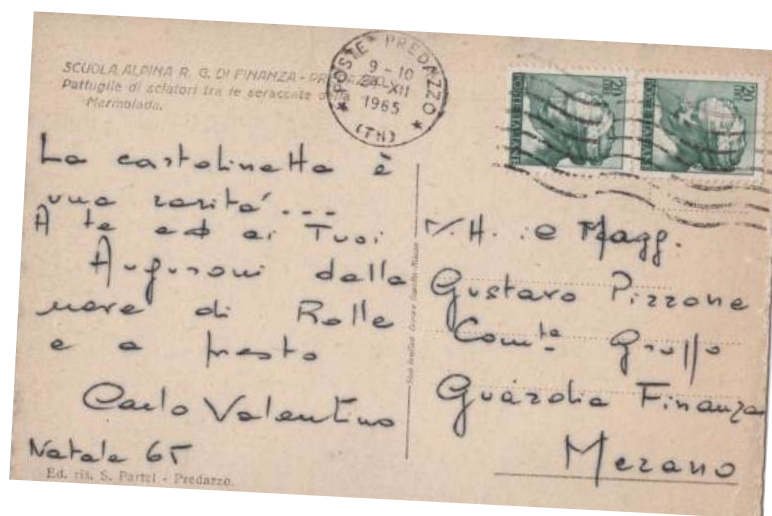 SCUOLA ALPINA R. G. DI FINANZA -
Pattuglie di sciatori tra le seraccate della
Marmolada.
POSTE PREDAZZO
9 - 10
XII
1965
(TN)
20
20
La cartolinetta è
una rarità...
A te ed ai Tuoi
Auguroni dalla
neve di Rolle
e a presto
Carlo Valentino
Natale 65
Ed. ris. S. Partel - Predazzo.
Magg.
Gustavo Pizzone
Com.te Gruppo
Guardia Finanza
Merano